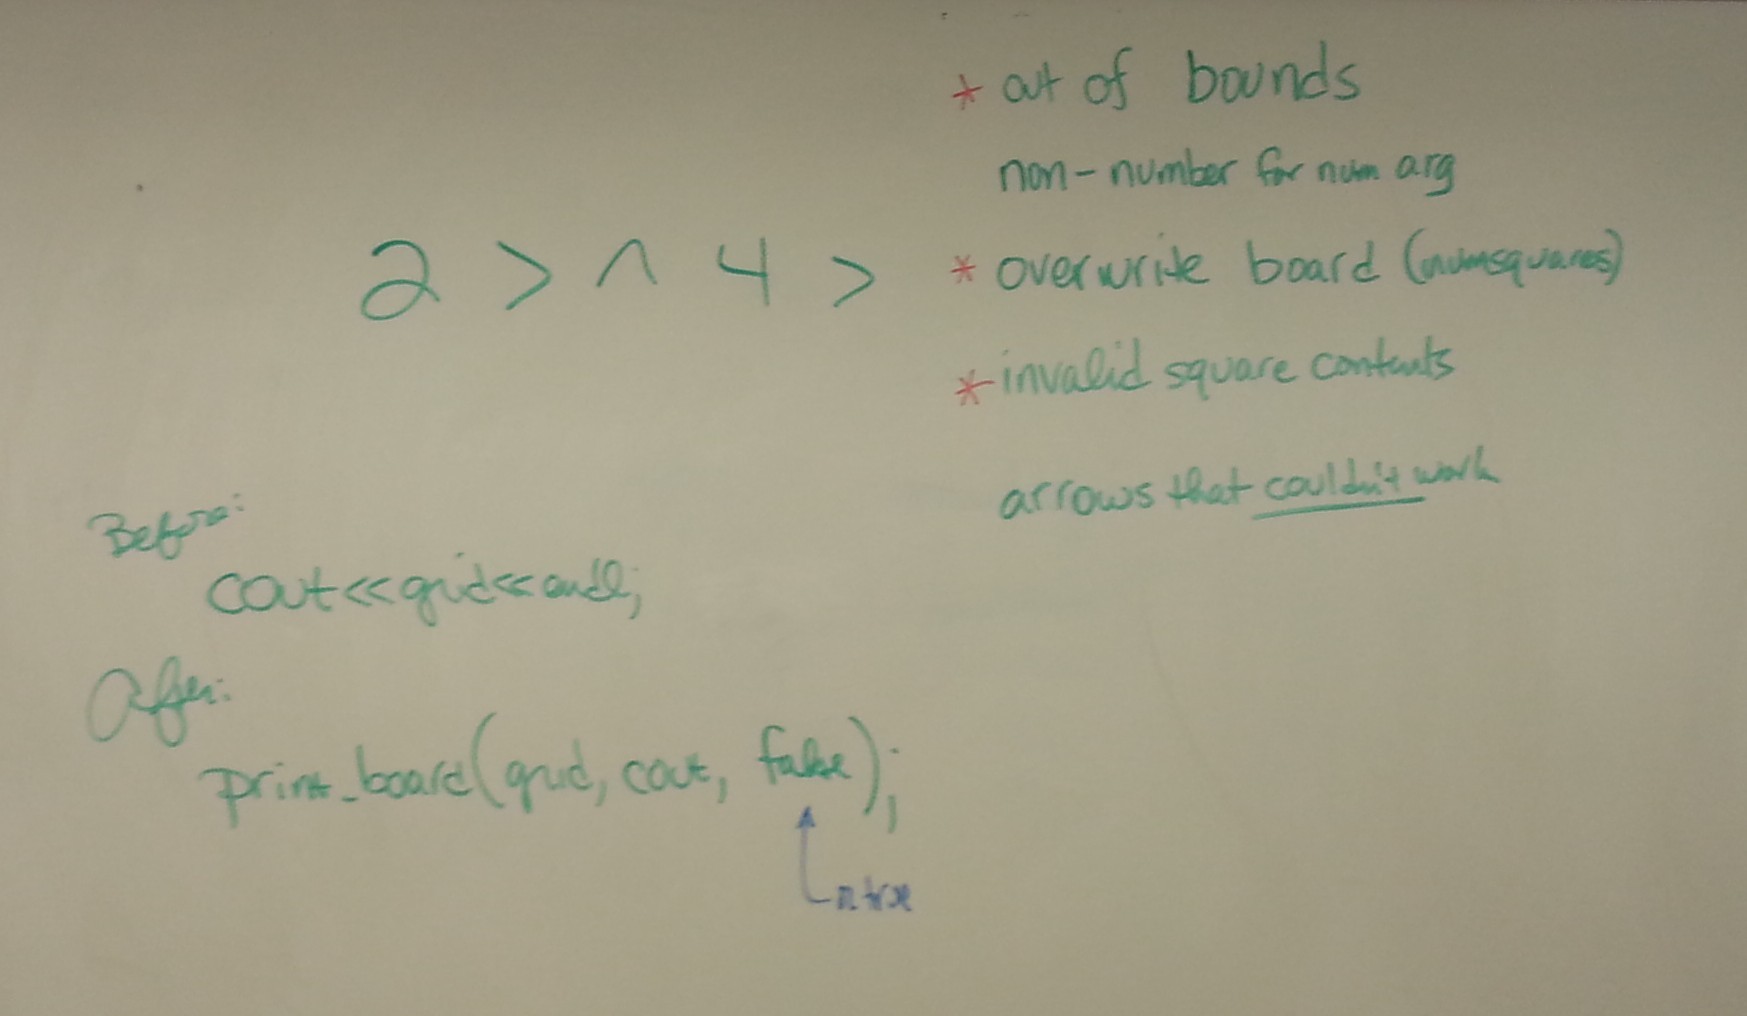 * out of bounds
non-number for num arg
2 > ^ 4 >
* overwrite board (numsquares)
* invalid square contents
arrows that couldn't work
Before:
cout<<grid<<endl;
After:
print_board(grid, cout, false);
true